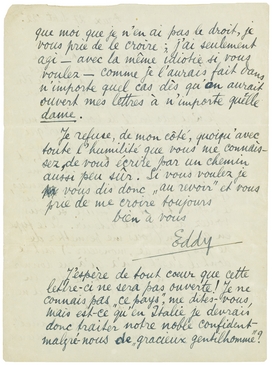 que moi que je n'en ai pas le droit, je
vous prie de le croire ; j'ai seulement
agi — avec la même idiotie si vous
voulez — comme je l'aurais fait dans
n'importe quel cas dès qu'on aurait
ouvert mes lettres à n'importe quelle
dame.
Je refuse, de mon côté, quoiqu'avec
toute l'humilité que vous me connais-
sez, de vous écrire par un chemin
aussi peu sûr. Si vous voulez je
vous dis donc „au revoir" et vous
prie de me croire toujours
bien à vous
Eddy
J'espère de tout cœur que cette
lettre-ci ne sera pas ouverte! Je ne
connais pas „ce pays", me dites-vous,
mais est-ce qu'en Italie je devrais
donc traiter notre noble confident-
malgré-nous de „gracieux gentilhomme"?